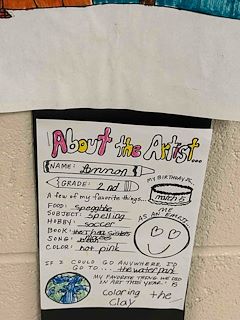 About the Artist...
NAME: Lennon
MY BIRTHDAY IS
GRADE: 2nd
A few of my favorite things...
FOOD: spegettie
SUBJECT: spelling
AS AN EMOJI
HOBBY: soccer
BOOK:
SONG:
COLOR: hot pink
IF I COULD GO ANYWHERE I'D
GO TO.... the water park
MY FAVORITE THING WE DID
IN ART THIS YEAR: IS
coloring the
clay